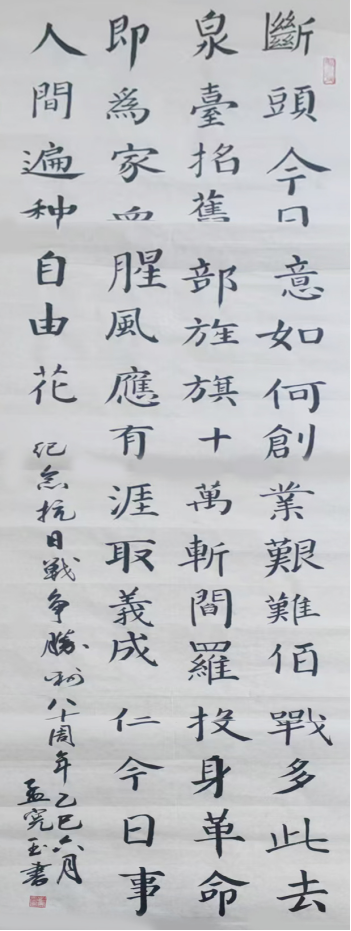 斷頭今日意如何創業艱難佰戰多此去
泉臺招舊部旌旗十萬斬閻羅投身革命
即為家血腥風應有涯取義成仁今日事
人間遍种自由花
纪念抗日戰争勝利八十周年乙巳六月
孟宪玉書